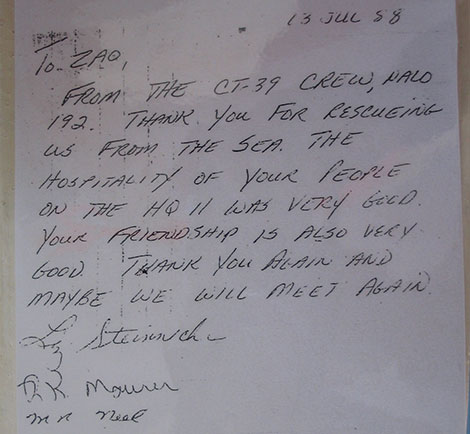 13 JUL 88
To ZAO,
FROM THE CT-39 CREW, HALO
192. THANK YOU FOR RESCUEING
US FROM THE SEA. THE
HOSPITALITY OF YOUR PEOPLE
ON THE HQ 11 WAS VERY GOOD.
YOUR FRIENDSHIP IS ALSO VERY
GOOD. THANK YOU AGAIN AND
MAYBE WE WILL MEET AGAIN.
Maurer
M R Neel